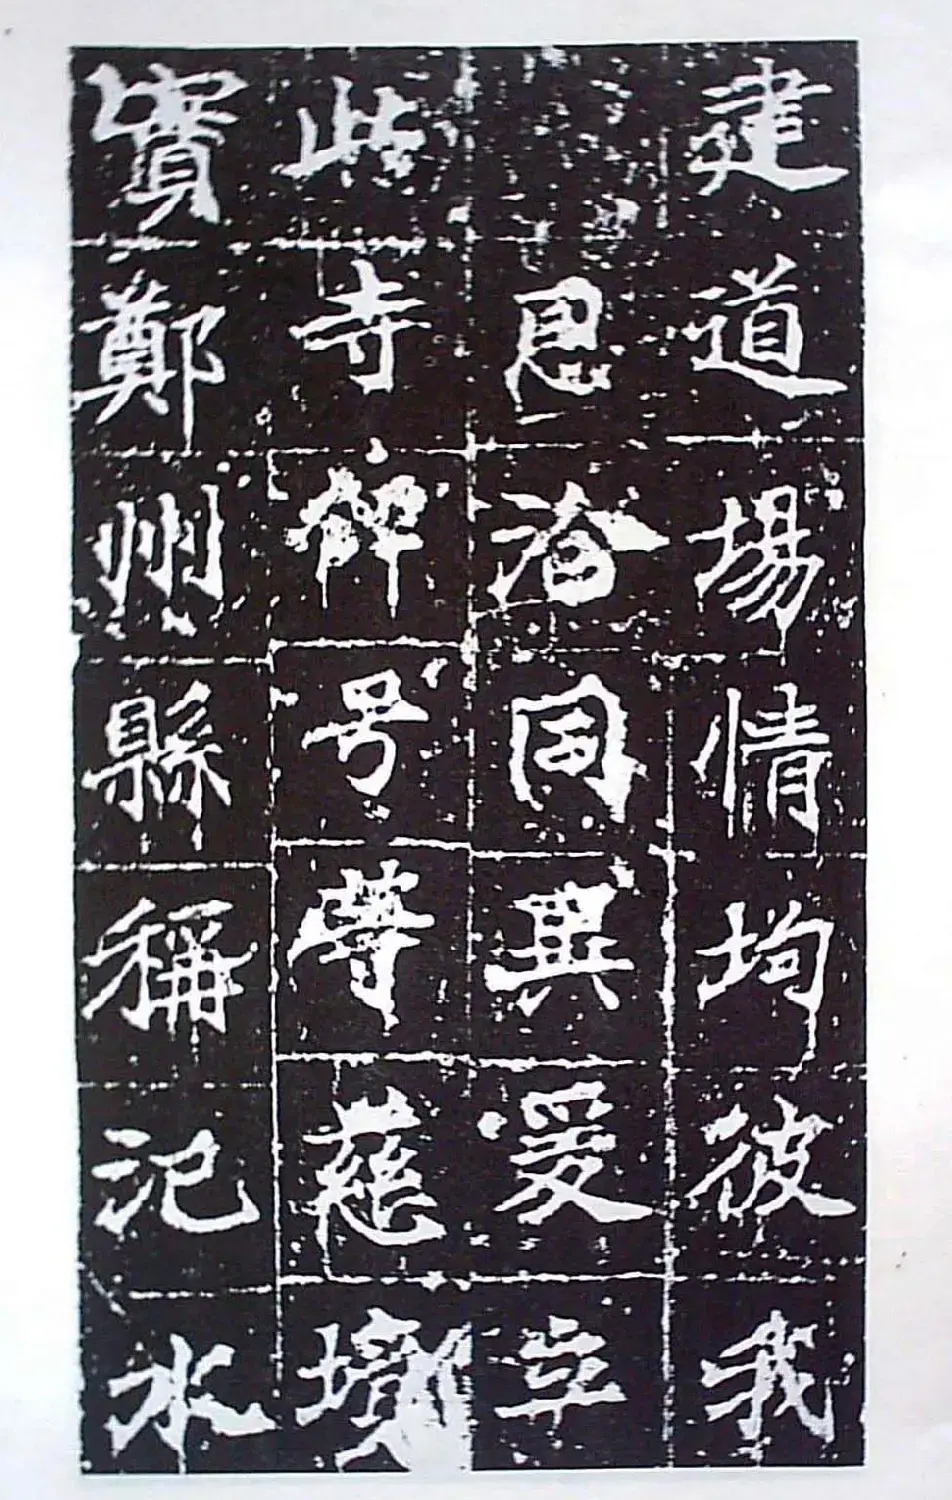 建道場情均彼我
恩洽同異爰立
此寺俾号等慈境
實鄭州縣稱汜水